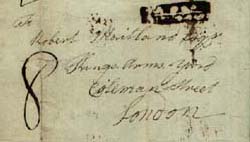 To
Robert Maitland Esqr
Kings Arms Yard
Coleman Street
London
8